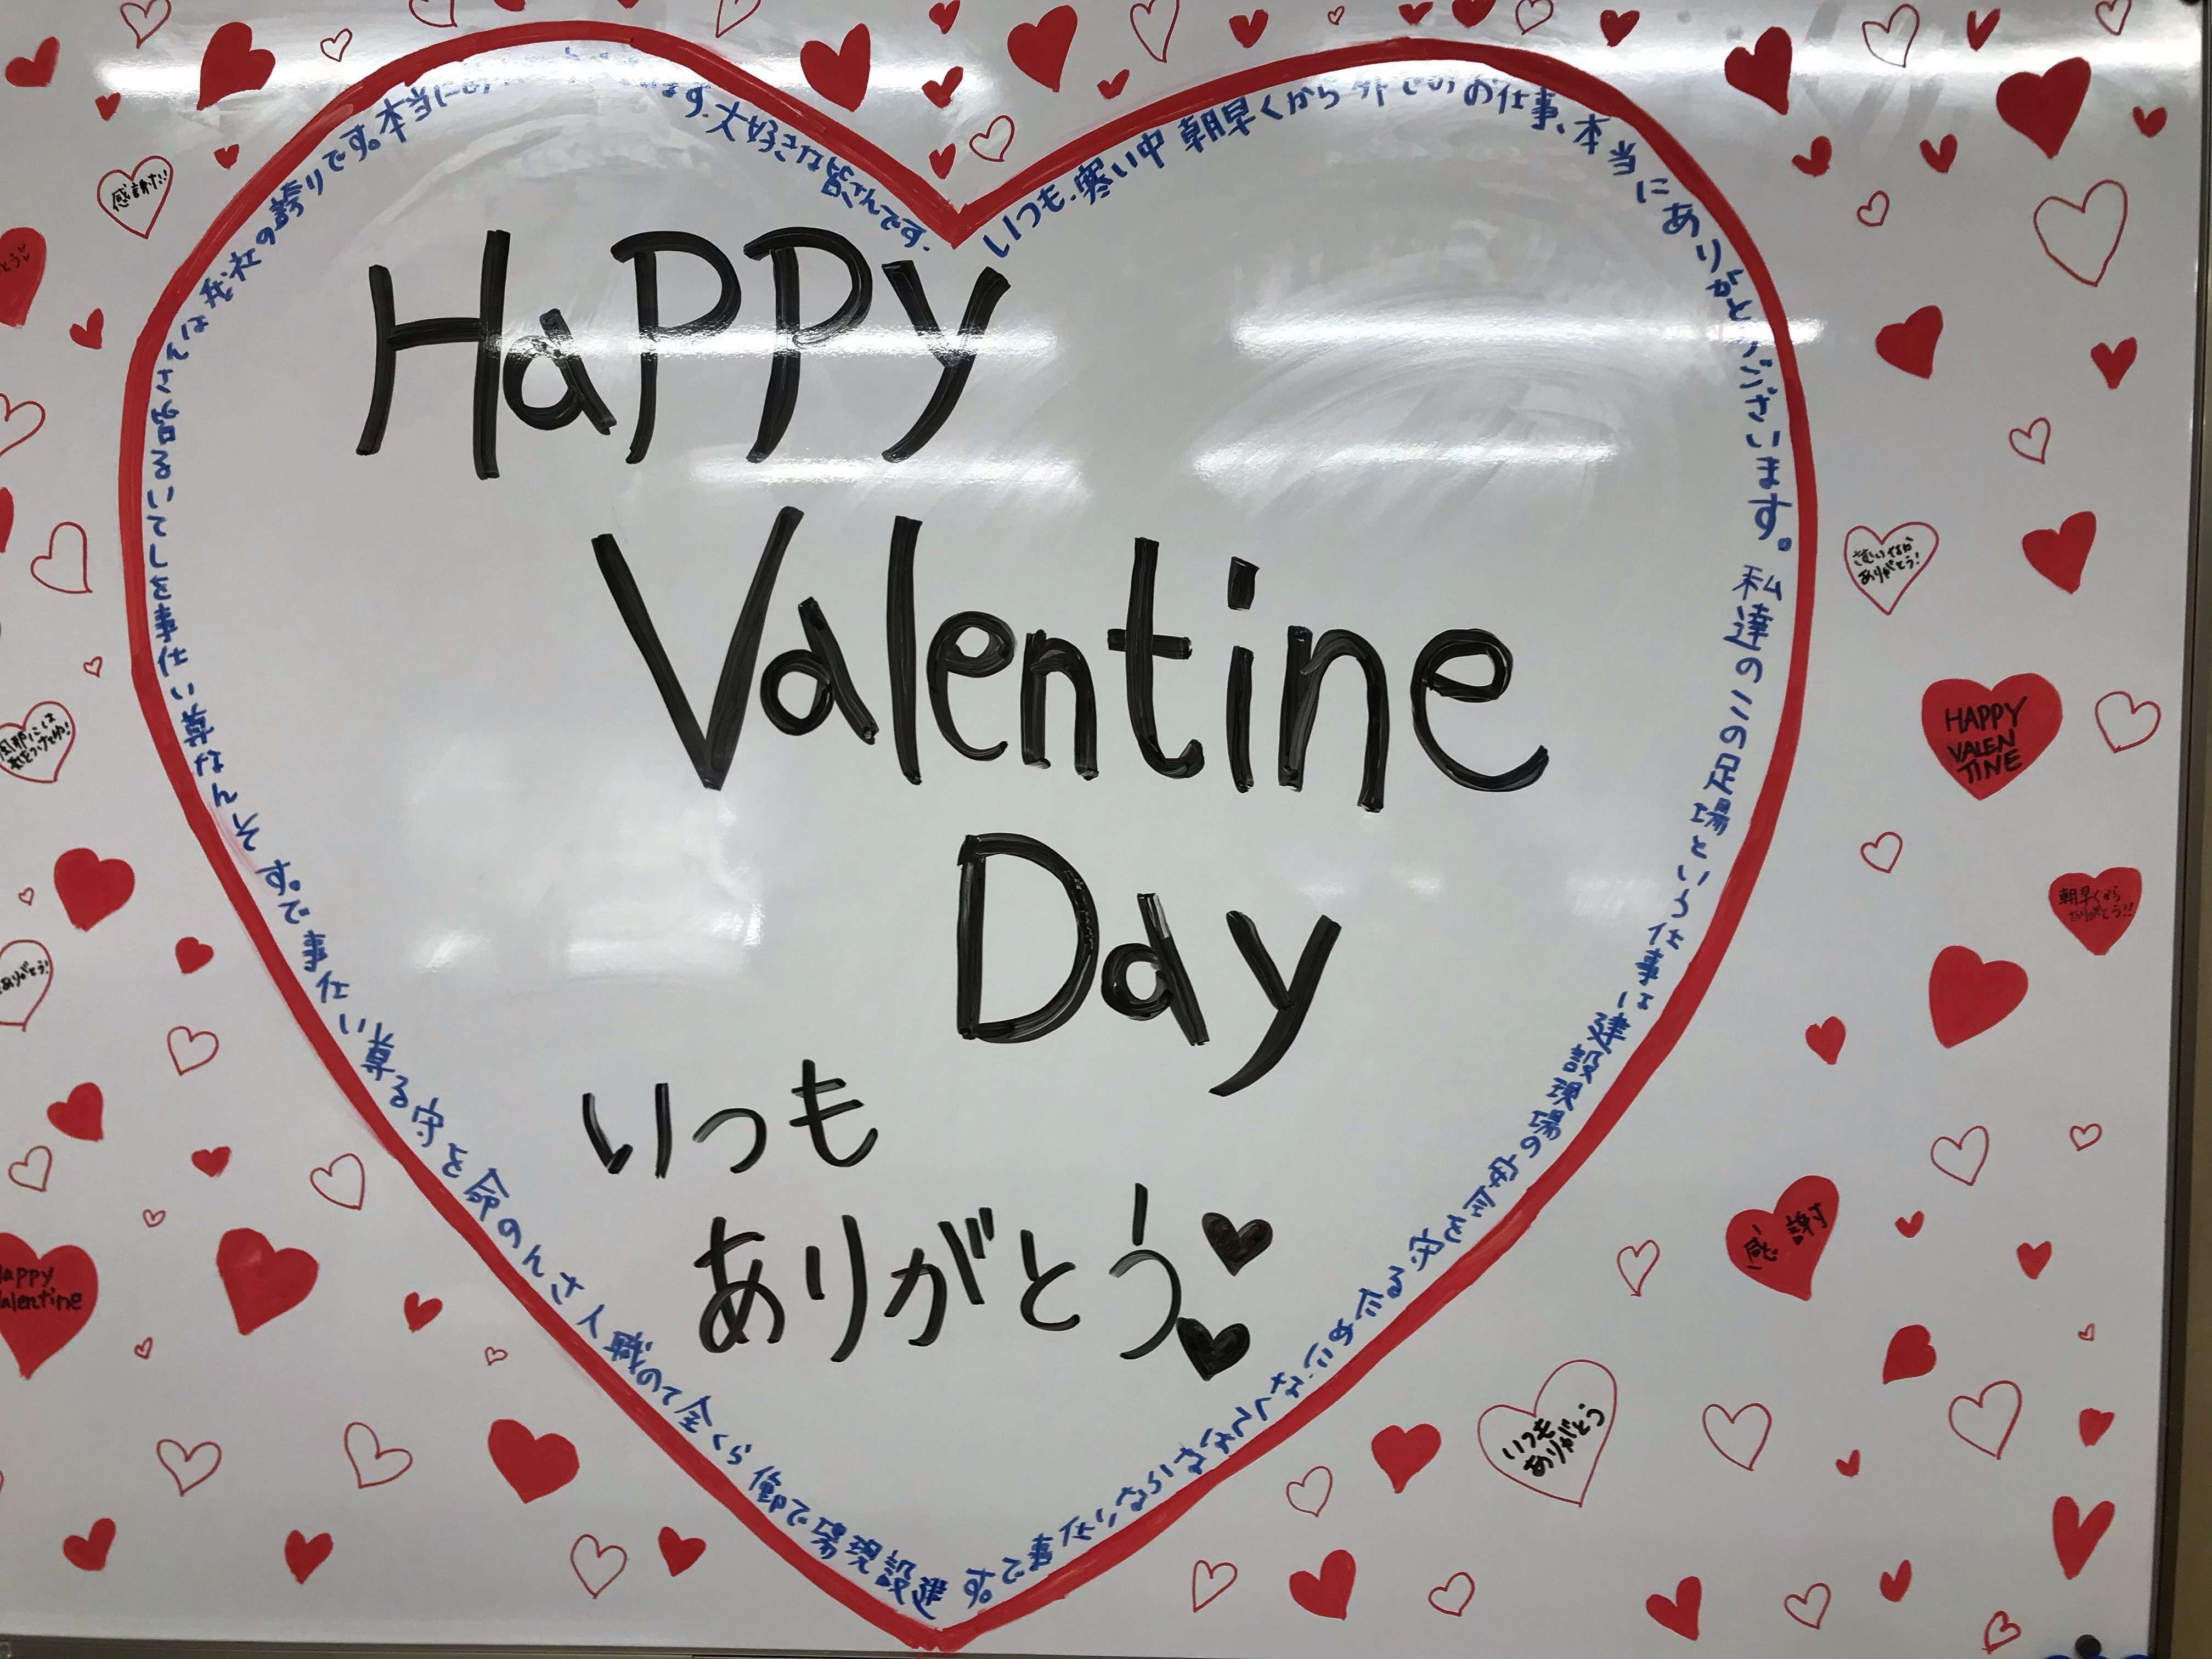 HaPPy
Valentine
Day
いつも
ありがとう
いつも.寒い中 朝早くから外でのお仕事、本当にありがとうございます。私達のいる現場という仕事は建設現場の安全を守るためになくてはならないお仕事です。
建設現場で働く全ての職人さんの命を守る尊いお仕事です。そんな尊いお仕事をしている皆さんは我社の誇りです。本当に
ます.大好きな皆さんです.
感謝だ!!
さむいなか
ありがとう!
HAPPY
VALEN
TINE
朝早くから
ありがとう!!
感謝
いつも
ありがとう
ありがとう!
Happy
Valentine